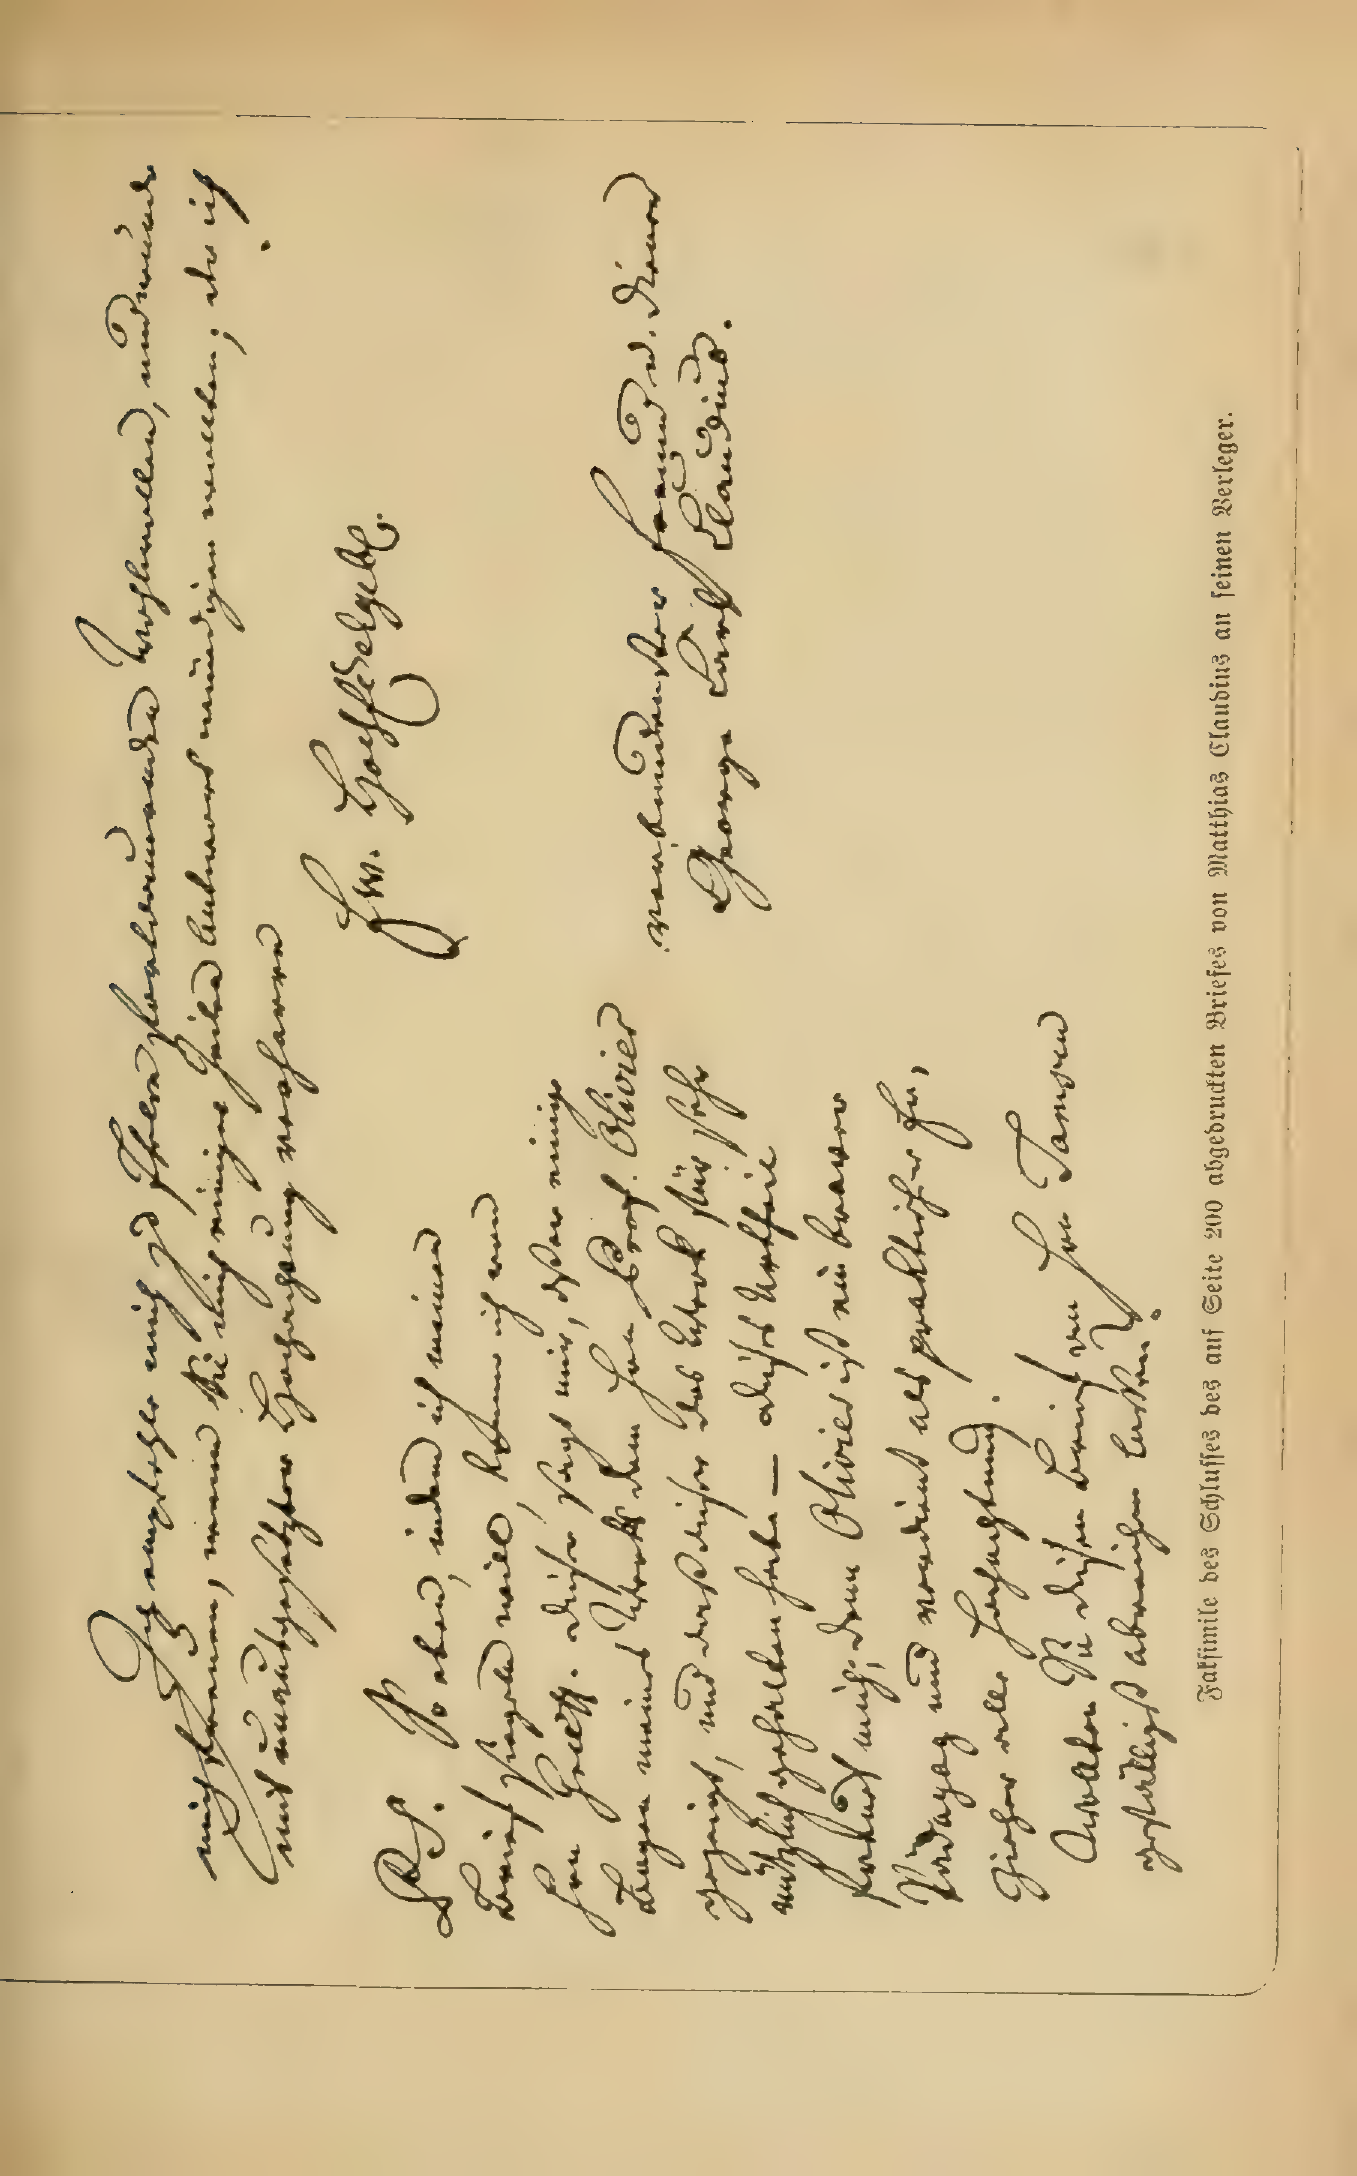 Ich empfehle mich zu Ihrem fortdauernden Wohlwollen, und würde
mich freuen, wenn Sie mich einiger Zeilen Antwort würdigen wollen; der ich
mit unausgesetzter Hochachtung verharre
Ew. Hochedelgeb.
verbundenster Freund u. Diener
George Carl Claudius.
PS. So eben, indem ich meinen
Brief siegeln will, komme ich von
Hrn ; dieser sagt mir, daß er einige
Bogen meines Werks dem Hrn Prof. Olivier
gezeigt, und daß dieser das Werk für sehr
nützlich gehalten habe — dieses Urtheil
freut mich; denn Olivier ist ein braver
Pädagog und verdient als praktischer
aller Hochachtung.
Wollten Sie diesen Brief an Hrn Tampen
gefälligst abreichen lassen?
Faksimile des Schlusses des auf Seite 200 abgedruckten Briefes von Matthias Claudius an seinen Verleger.